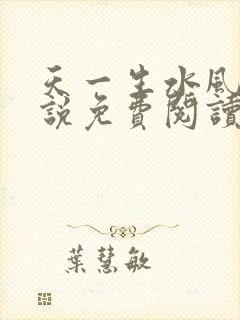 天一生水風
說免費閱讀
葉慧敏